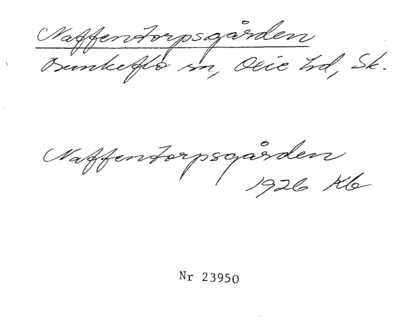 Naffentorpsgården
Bunkeflo sn, Oxie hd, Sk.
Naffentorpsgården
1926 Kb
Nr 23950